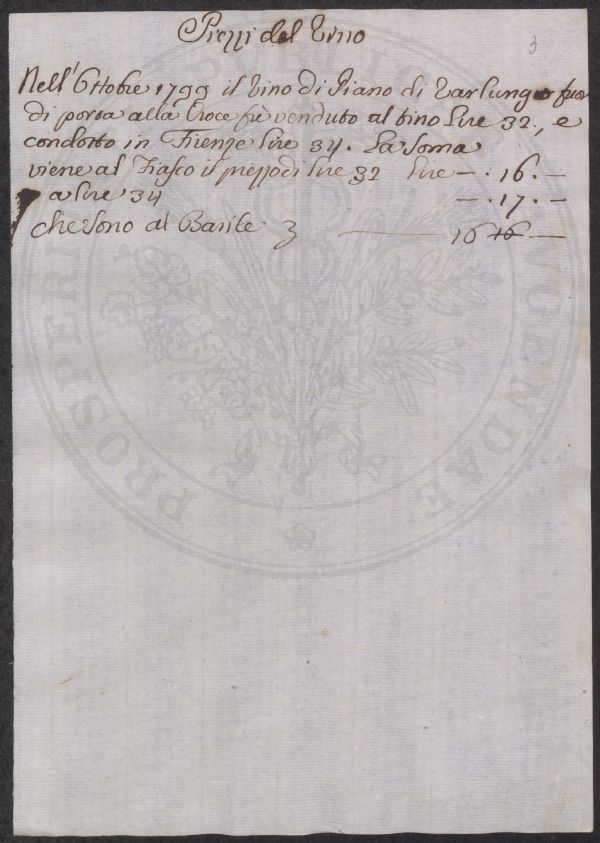 Prezzi del Vino
3
Nell' Ottobre 1799 il Vino di Piano di Varlungo fuor
di porta alla Croce fù venduto al tino lire 32., e
condotto in Firenze lire 34. La Soma
viene al Fiasco il prezzo di lire 32 lire —. 16. —
a lire 34 —. 17. —
che sono al Barile 16 —
PROSPERI
PUBLIC